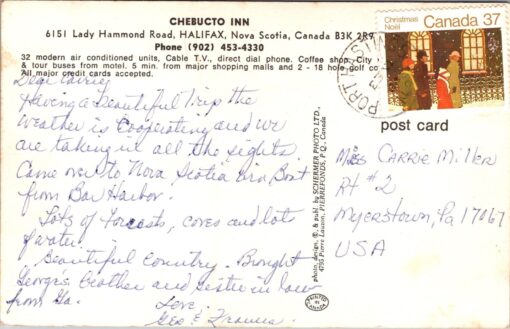 CHEBUCTO INN
6151 Lady Hammond Road, HALIFAX, Nova Scotia, Canada B3K 2R9
Phone (902) 453-4330
32 modern air conditioned units, Cable T.V., direct dial phone. Coffee shop. City
& tour buses from motel. 5 min. from major shopping malls and 2 - 18 hole golf co
All major credit cards accepted.
Dear Carrie,
Having a beautiful Trip the
weather is Cooperating and we
are taking in all the sights.
Came over to Nova Scotia via Boat
from Bar Harbor.
Lots of Forests, coves and lots
of water.
Beautiful Country. Brought
George's brother and sister in law
from Ga.
Love,
Geo & Frances
photo, design, ©, & pub. by SCHERMER PHOTO LTD.,
4795 Pierre Lauzon, PIERREFONDS, P.Q., Canada
PRINTED IN CANADA
Christmas
Noël
Canada 37
PORT HASTIN
post card
Miss CARRIE Miller
Rt #2
Myerstown, Pa 17067
USA